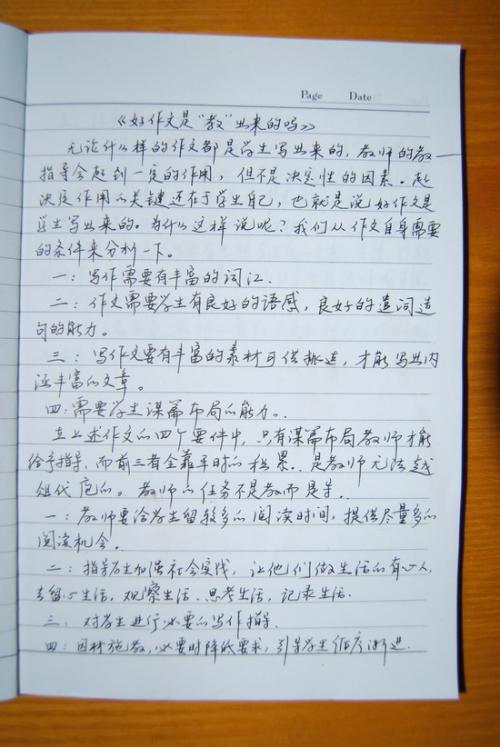 Page Date
《好作文是“教”出来的吗》
无论什么样的作文都是学生写出来的，教师的教
指导会起到一定的作用，但不是决定性的因素。起
决定作用的关键还在于学生自己，也就是说好作文是
学生写出来的。为什么这样说呢？我们从作文自身需要
的条件来分析一下。
一：写作需要有丰富的词汇．
二：作文需要学生有良好的语感，良好的遣词造
句的能力。
三：写作文要有丰富的素材可供挑选，才能写出内
涵丰富的文章。
四：需要学生谋篇布局的能力。
在上述作文的四个要件中，只有谋篇布局教师才能
给予指导，而前三者全靠平时的积累．是教师无法越
俎代庖的。教师的任务不是教而是导．
一：教师要给学生留较多的阅读时间，提供尽量多的
阅读机会。
二：指导学生加强社会实践，让他们做生活的有心人，
去留心生活，观察生活、思考生活，记录生活．
三、对学生进行必要的写作指导．
四：因材施教，必要时降低要求，引导学生循序渐进．